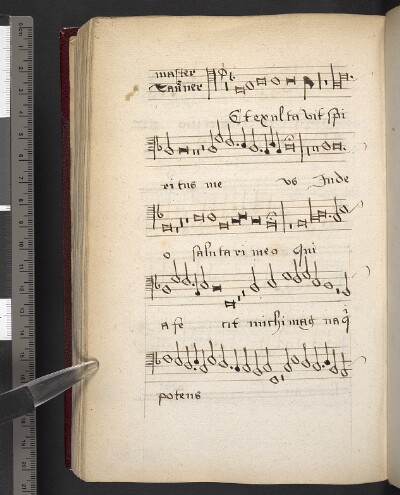 master
Tauner
Et exultavit spi
ritus me us Inde
o salutari meo qui
a fe cit michi mag na q
potens